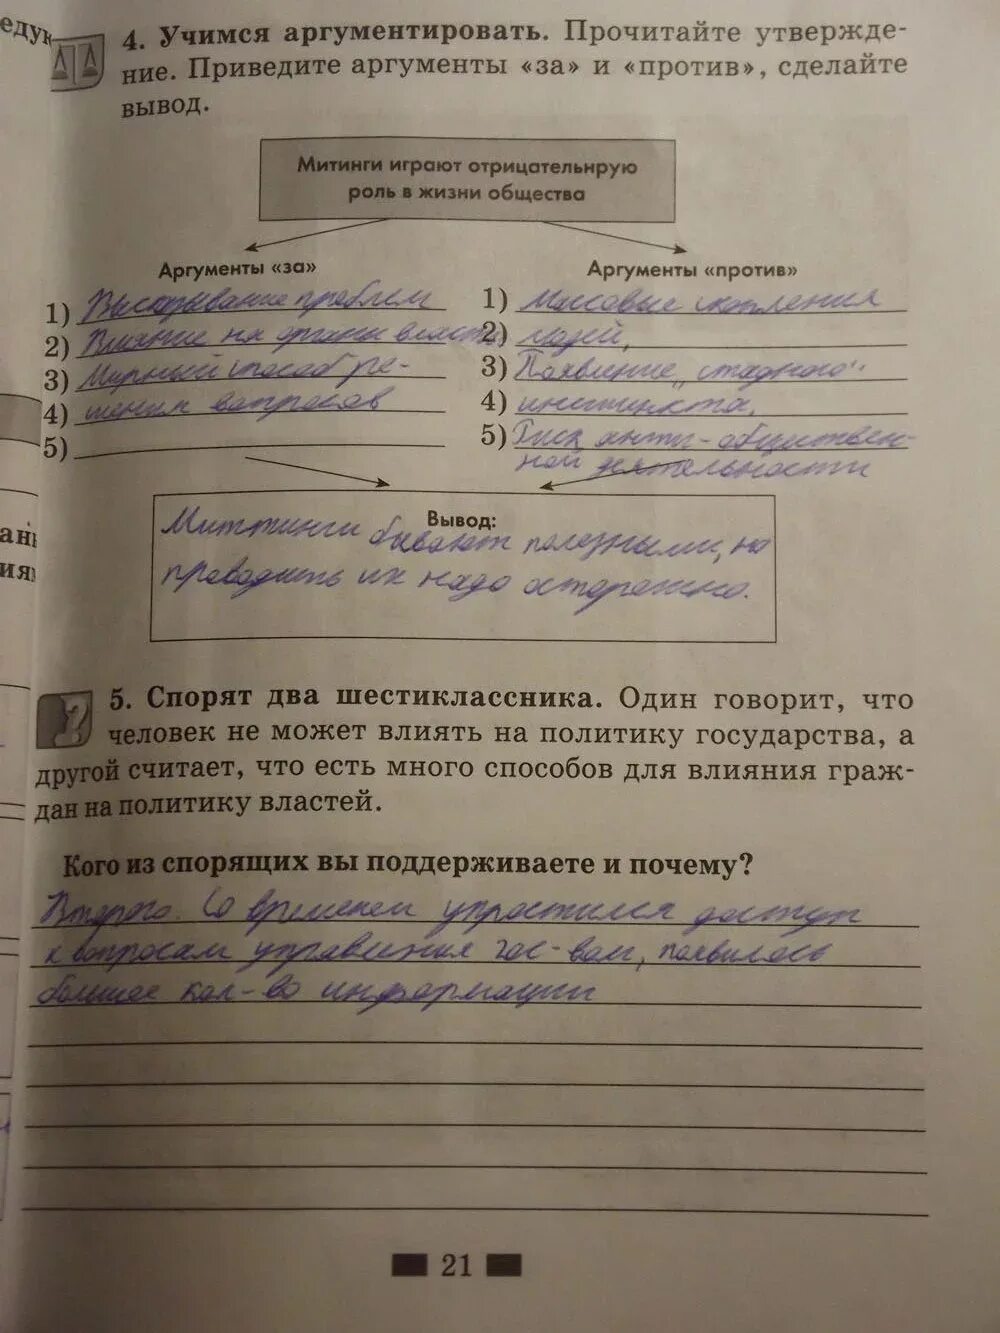 едук
4. Учимся аргументировать. Прочитайте утвержде-
ние. Приведите аргументы «за» и «против», сделайте
вывод.
Митинги играют отрицательнрую
роль в жизни общества
Аргументы «за»
1) Выскрывание проблем
2) Влияние на органы власти
3) Мирный способ ре-
4) шения вопросов
5)
Аргументы «против»
1) Массовые скопления
2) людей,
3) Появление „стадного"
4) инстинкта,
5) Риск анти-обществен-
ной деятельности
Вывод:
Миттинги бывают полезными, но
проводить их надо осторожно.
5. Спорят два шестиклассника. Один говорит, что
человек не может влиять на политику государства, а
другой считает, что есть много способов для влияния граж-
дан на политику властей.
Кого из спорящих вы поддерживаете и почему?
Второго. Со временем упростился доступ
к вопросам управления гос-вом, появилось
большое кол-во информации
21